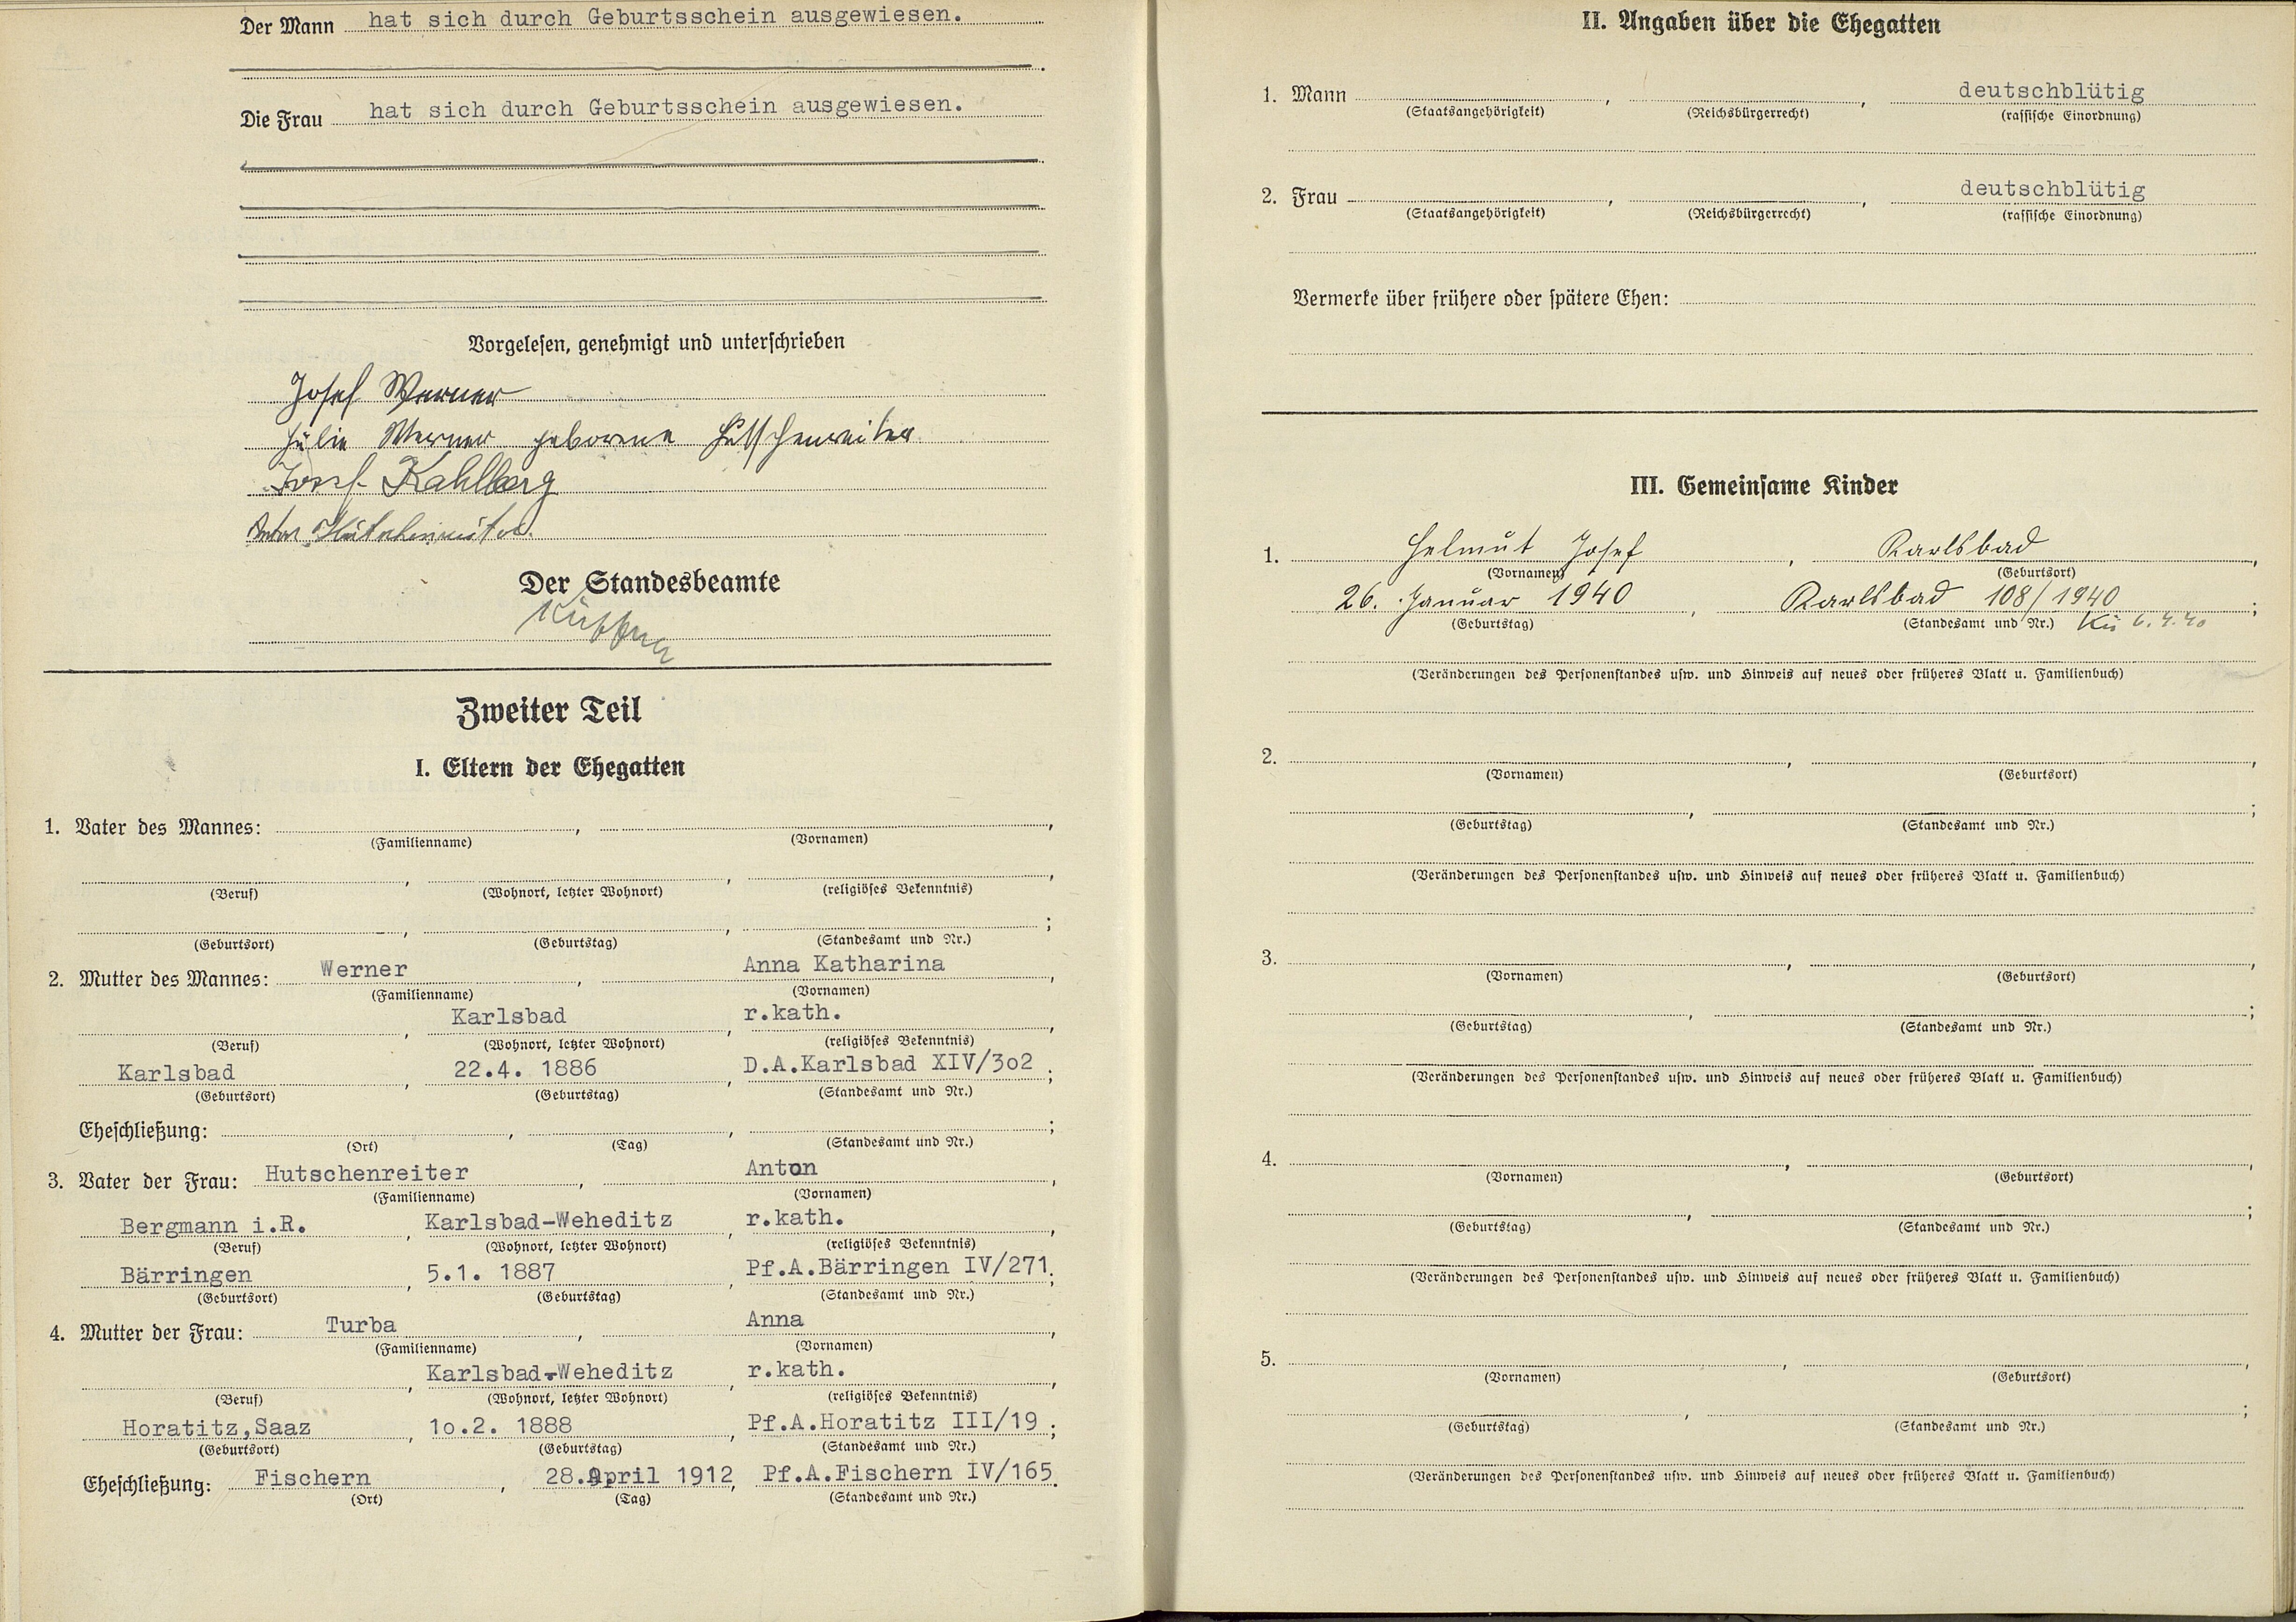 Der Mann hat sich durch Geburtsschein ausgewiesen.
Die Frau hat sich durch Geburtsschein ausgewiesen.
Vorgelesen, genehmigt und unterschrieben
Josef Werner
Julie Werner geborene Hutschenreiter
Josef Kahlberg
Anton Hutschenreiter
Der Standesbeamte
Zweiter Teil
I. Eltern der Ehegatten
1. Vater des Mannes: , ,
(Familienname) (Vornamen)
(Beruf) (Wohnort, letzter Wohnort) (religiöses Bekenntnis)
(Geburtsort) (Geburtstag) (Standesamt und Nr.)
2. Mutter des Mannes: Werner , Anna Katharina ,
(Familienname) (Vornamen)
, Karlsbad , r.kath. ,
(Beruf) (Wohnort, letzter Wohnort) (religiöses Bekenntnis)
Karlsbad , 22.4. 1886 , D.A.Karlsbad XIV/3o2 ;
(Geburtsort) (Geburtstag) (Standesamt und Nr.)
Eheschließung: , , ;
(Ort) (Tag) (Standesamt und Nr.)
3. Vater der Frau: Hutschenreiter , Anton ,
(Familienname) (Vornamen)
Bergmann i.R. , Karlsbad-Weheditz , r.kath. ,
(Beruf) (Wohnort, letzter Wohnort) (religiöses Bekenntnis)
Bärringen , 5.1. 1887 , Pf.A.Bärringen IV/271 ;
(Geburtsort) (Geburtstag) (Standesamt und Nr.)
4. Mutter der Frau: Turba , Anna ,
(Familienname) (Vornamen)
, Karlsbad-Weheditz , r.kath. ,
(Beruf) (Wohnort, letzter Wohnort) (religiöses Bekenntnis)
Horatitz,Saaz , 1o.2. 1888 , Pf.A.Horatitz III/19 ;
(Geburtsort) (Geburtstag) (Standesamt und Nr.)
Eheschließung: Fischern , 28.April 1912 , Pf.A.Fischern IV/165.
(Ort) (Tag) (Standesamt und Nr.)
II. Angaben über die Ehegatten
1. Mann , , deutschblütig
(Staatsangehörigkeit) (Reichsbürgerrecht) (rassische Einordnung)
2. Frau , , deutschblütig
(Staatsangehörigkeit) (Reichsbürgerrecht) (rassische Einordnung)
Vermerke über frühere oder spätere Ehen:
III. Gemeinsame Kinder
1. Helmut Josef , Karlsbad ,
(Vornamen) (Geburtsort)
26. Januar 1940 , Karlsbad 108/1940 ;
(Geburtstag) (Standesamt und Nr.) Kü 6.4.40
(Veränderungen des Personenstandes usw. und Hinweis auf neues oder früheres Blatt u. Familienbuch)
2. , ,
(Vornamen) (Geburtsort)
, ;
(Geburtstag) (Standesamt und Nr.)
(Veränderungen des Personenstandes usw. und Hinweis auf neues oder früheres Blatt u. Familienbuch)
3. , ,
(Vornamen) (Geburtsort)
, ;
(Geburtstag) (Standesamt und Nr.)
(Veränderungen des Personenstandes usw. und Hinweis auf neues oder früheres Blatt u. Familienbuch)
4. , ,
(Vornamen) (Geburtsort)
, ;
(Geburtstag) (Standesamt und Nr.)
(Veränderungen des Personenstandes usw. und Hinweis auf neues oder früheres Blatt u. Familienbuch)
5. , ,
(Vornamen) (Geburtsort)
, ;
(Geburtstag) (Standesamt und Nr.)
(Veränderungen des Personenstandes usw. und Hinweis auf neues oder früheres Blatt u. Familienbuch)